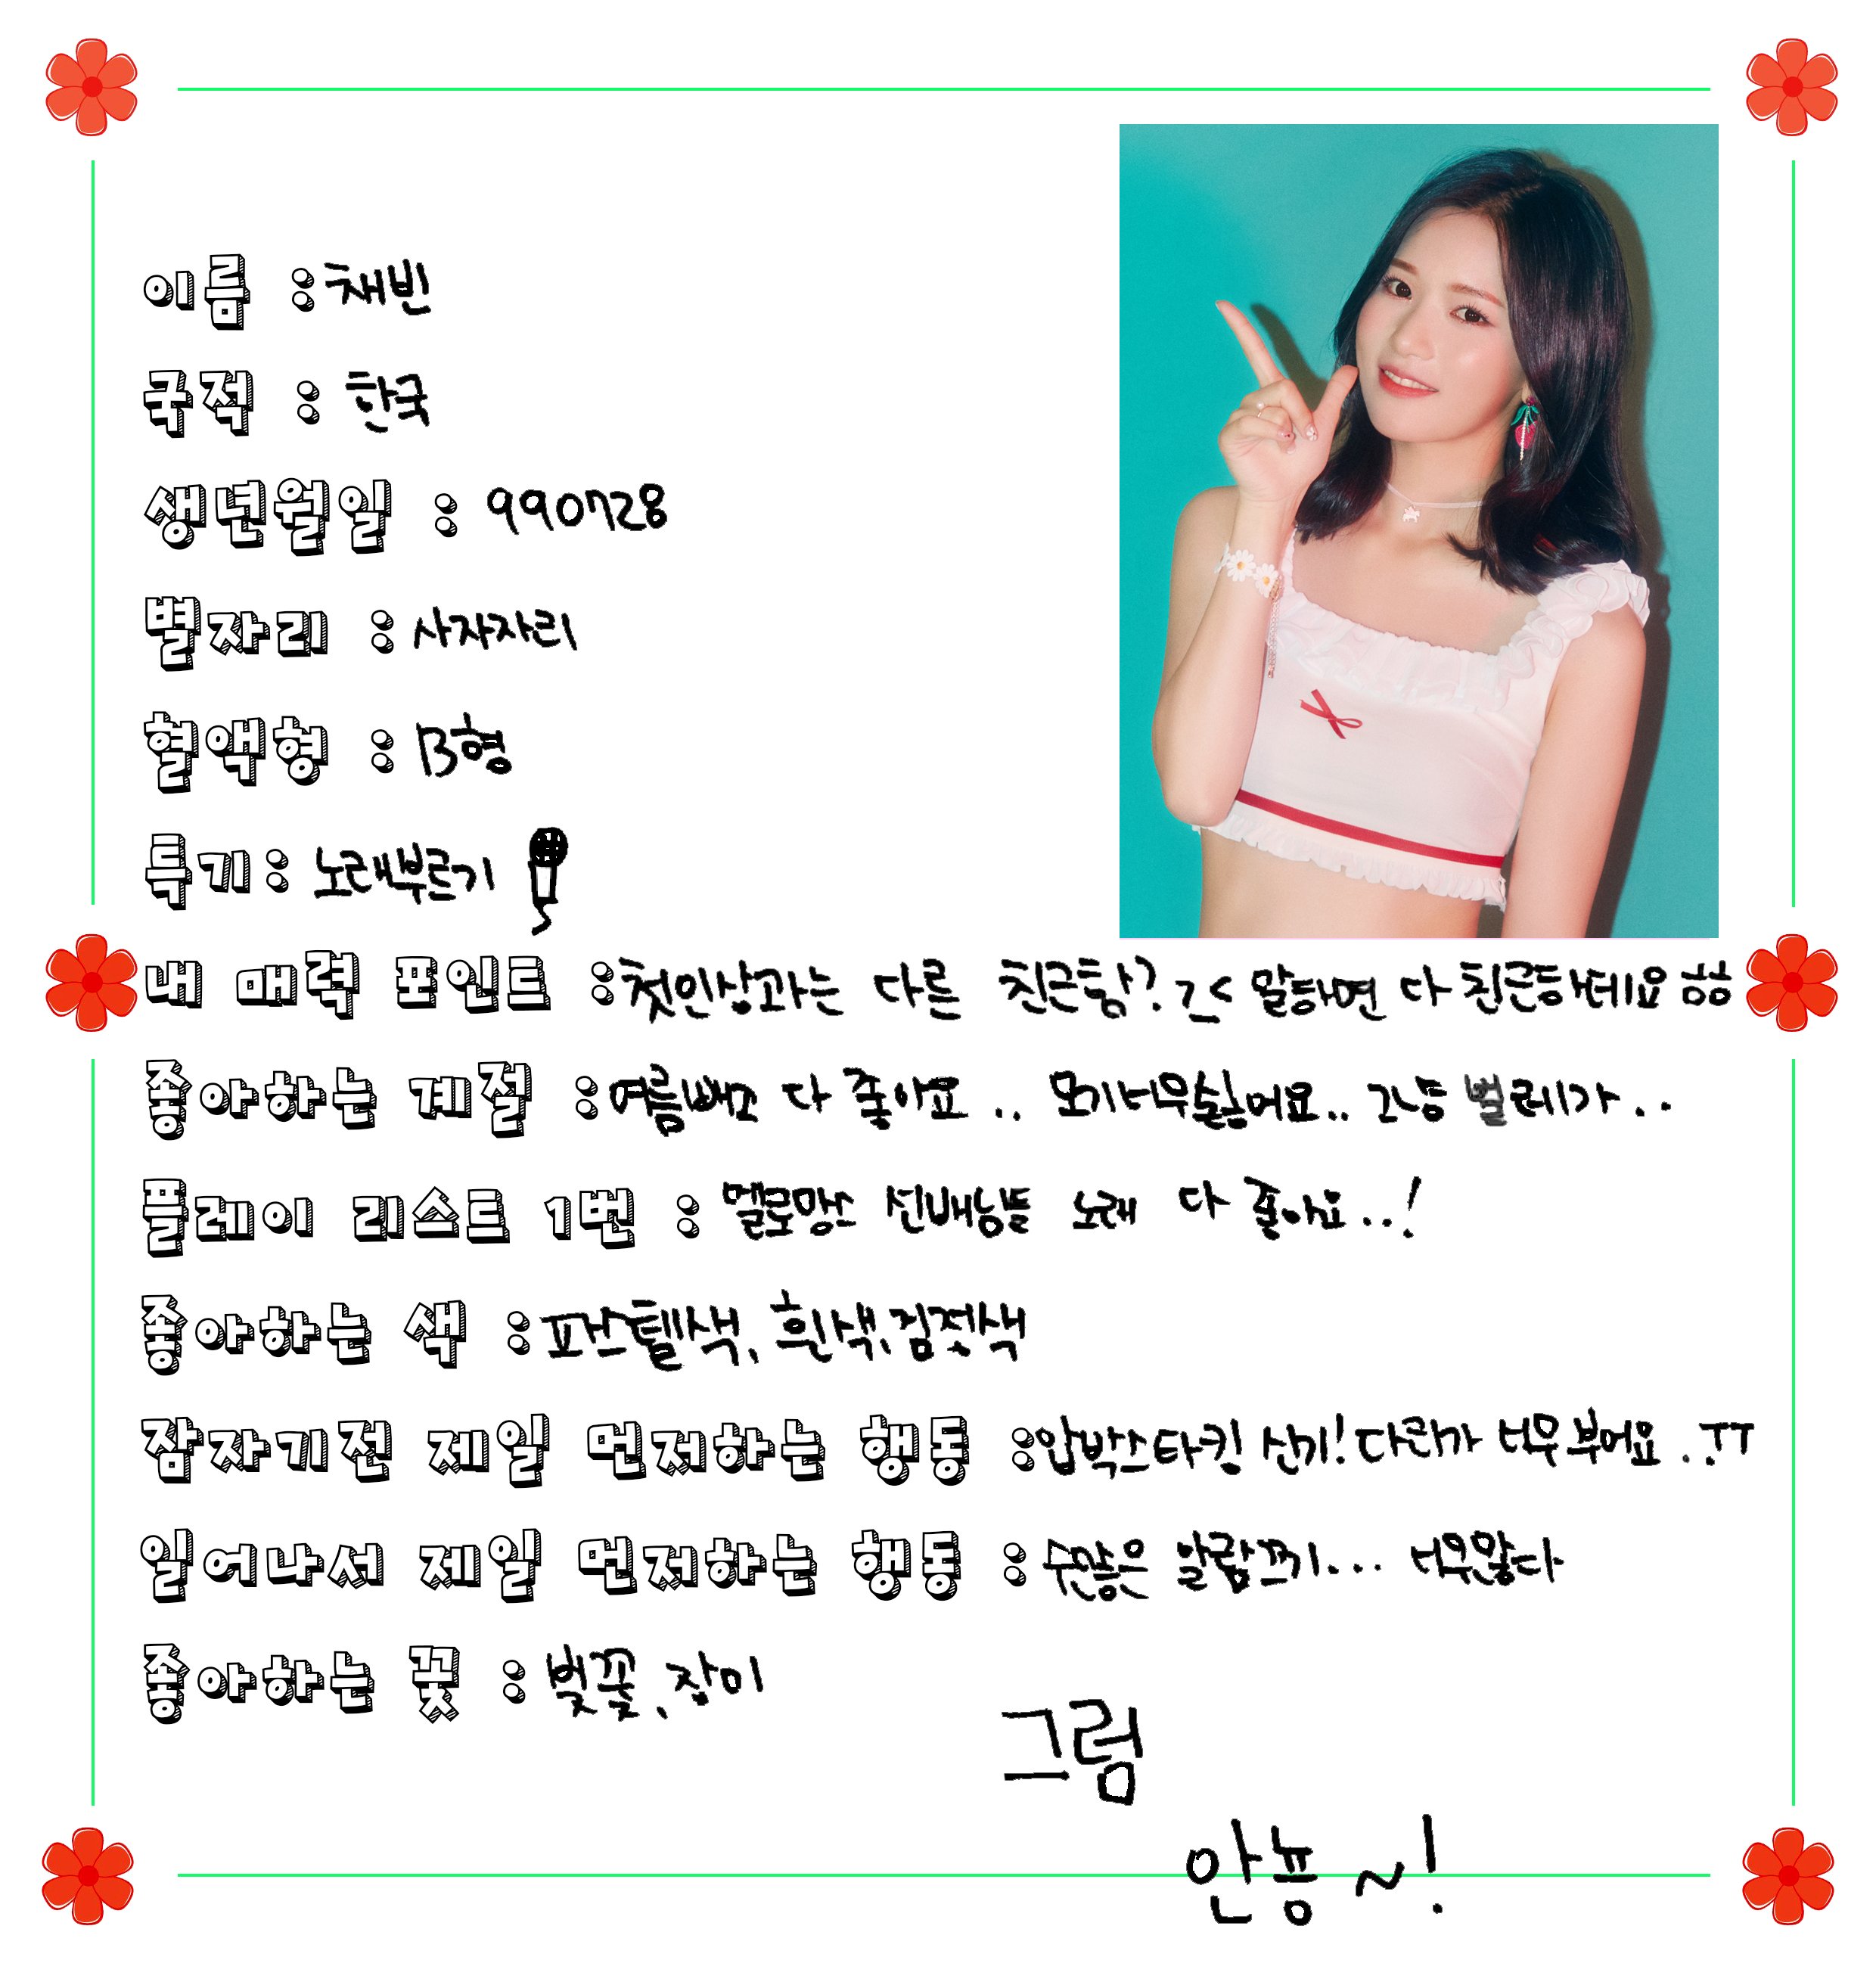 이름 : 채빈
국적 : 한국
생년월일 : 990728
별자리 : 사자자리
혈액형 : B형
특기 : 노래부르기
내 매력 포인트 : 첫인상과는 다른 친근함? ㄱㅡ< 말하면 다 친근하데요 ㅎㅎ
좋아하는 계절 : 여름빼고 다 좋아요 .. 모기너무싫어요.. 그냥 벌레가..
플레이 리스트 1번 : 멜로망스 선배님들 노래 다 좋아요..!
좋아하는 색 : 파스텔색, 흰색, 검정색
잠자기전 제일 먼저하는 행동 : 압박스타킹 신기! 다리가 너무 부어요 .. ㅜㅜ
일어나서 제일 먼저하는 행동 : 수많은 알람끄기... 너무많다
좋아하는 꽃 : 벚꽃, 장미
그럼
안뇽~!